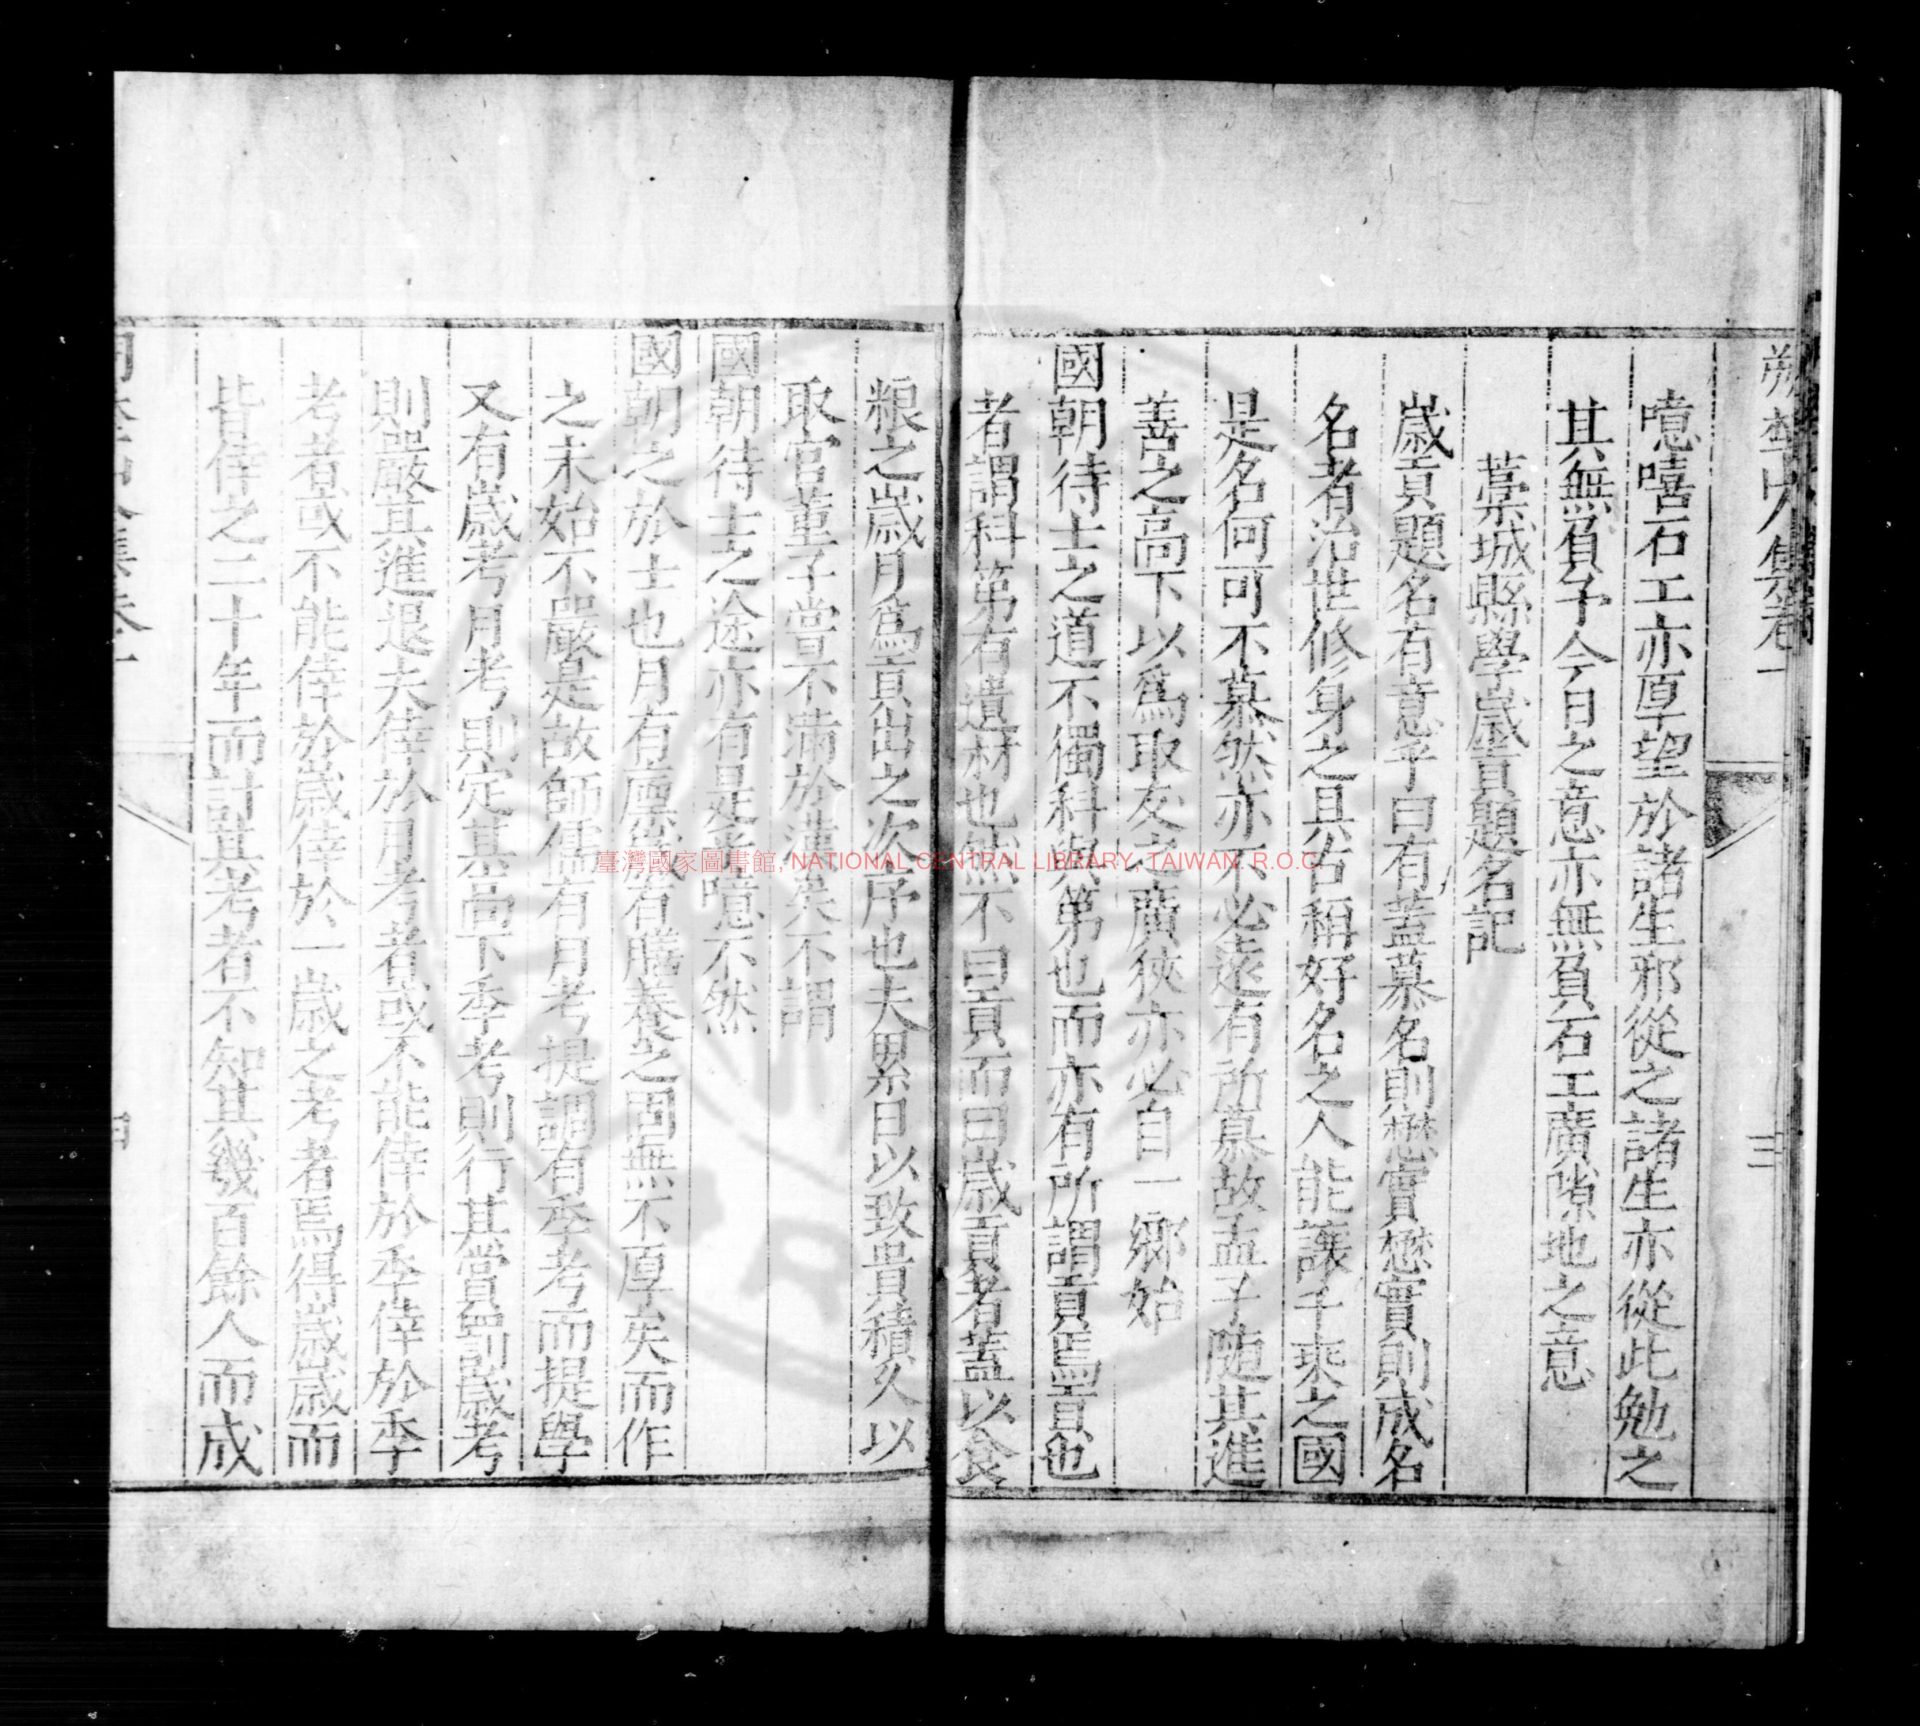 集卷一
三
噫嘻石工亦厚望於諸生邪從之諸生亦從此勉之
其無負予今日之意亦無負石工廣隙地之意
藁城縣學歲貢題名記
歲貢題名有意乎曰有蓋慕名則懋實懋實則成名
名者治世修身之具古稱好名之人能讓千乘之國
是名何可不慕然亦不必遠有所慕故孟子隨其進
善之高下以爲取友之廣狹亦必自一鄉始
國朝待士之道不獨科與第也而亦有所謂貢焉貢也
者謂科第有遺材也然不曰貢而曰歲貢者蓋以食
粮之歲月爲貢出之次序也夫累日以致貴積久以
取官董子嘗不滿於漢矣不謂
國朝待士之途亦有是乎噫不然
國朝之於士也月有廩歲有膳養之固無不厚矣而作
之未始不嚴是故師儒有月考提調有季考而提學
又有歲考月考則定其高下季考則行其賞罰歲考
則嚴其進退夫倖於月考者或不能倖於季倖於季
考者或不能倖於歲倖於一歲之考者焉得歲歲而
皆倖之二十年而計其考者不知其幾百餘人而成
集卷一
四
臺灣國家圖書館, NATIONAL CENTRAL LIBRARY, TAIWAN, R.O.C.